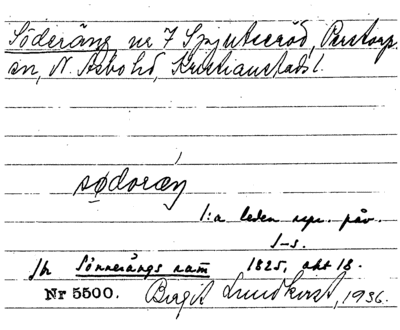 Söderäng nr 7 Spjutseröd, Perstorp
sn, N. Åsbo hd, Kristianstads l.
sødoræŋ
1:a leden repr. påv.
S-s.
Jb Sönnerängs nam̅ 1825, akt 18.
Nr 5500. Birgit Lundkvist, 1936.